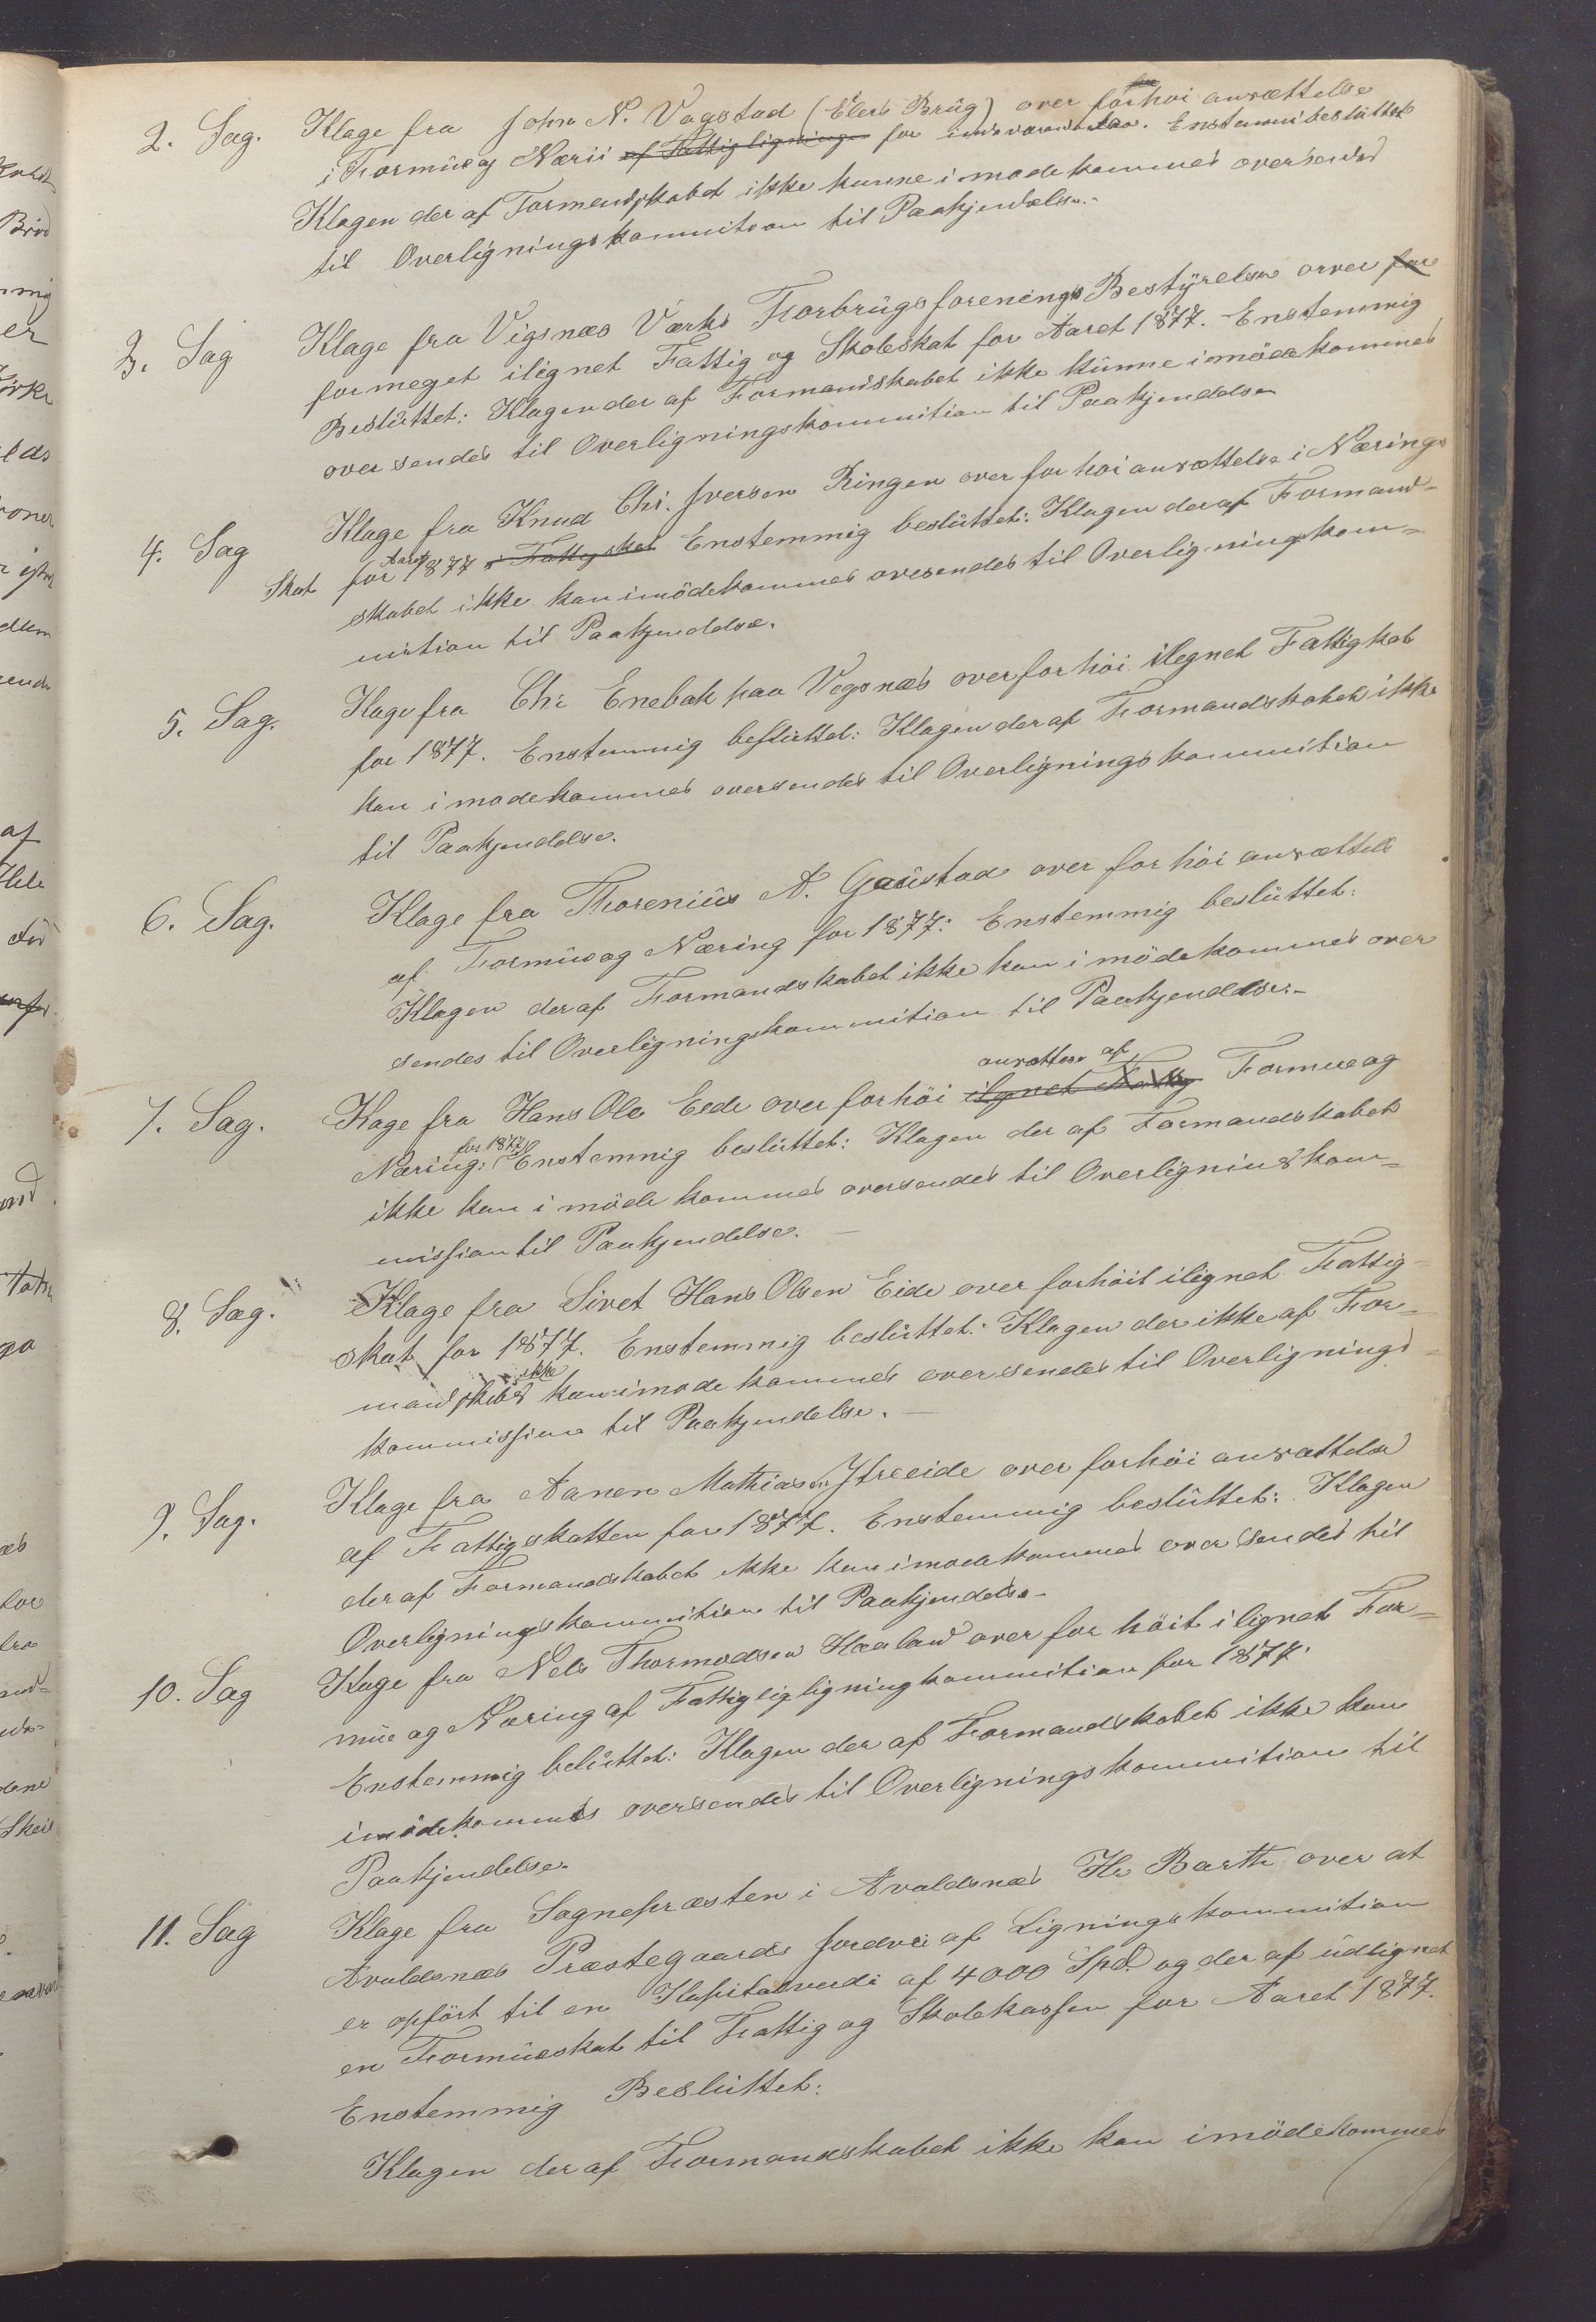 2. Sag. Klage fra John N. Vagstad (Elers Brüg) over for høi ansættelse
i Formüe og Nærii af Fattigligningen for indeværende Aar. Enstemmi beslüttet
Klagen der af Formendskabet ikke kunne imødekommes oversendes
til Overligningskommition til Paakjendelse.-
3. Sag Klage fra Vigsnæs Værks Forbrügsforenings Bestÿrelse over for
formeget ilignet Fattig og Skoleskat for Aaret 1877. Enstemmig
Beslüttet: Klagen der af Formandskabet ikke künne imödekommes
oversendes til Overligningskommition til Paakjendelse
4. Sag Klage fra Knud Chr. Iversen Ringen over for høi ansættelse i Nærings
Skat for Aaret 1877 i Fattigskat Enstemmig beslüttet: Klagen der af Formand-
skabet ikke kan imödekommes ovesendes til Overligningskom=
mition til Paakjendelse.
5. Sag. Klage fra Chr Enebak paa Vegsnæs over for höi ilegnet Fattigkat
for 1877. Enstemmig beslüttet: Klagen der af Formandskabet ikke
kan imødekommes oversendes til Overligningskommition
til Paakjendelse.
6. Sag. Klage fra Thorenius A. Gaüstad over for höi ansættelse
af Formüe og Næring for 1877: Enstemmig beslüttet:
Klagen der af Formandskabet ikke kan imödekommes over
sendes til Overligningskommition til Paakjendelse.-
7. Sag. Klage fra Hans Ols Eede over for höi ilignet Fattig ansættese af Formue og
Næring: for 1877 Enstemmig beslüttet: Klagen der af Formandskabet
ikke kan imöde kommes oversendes til Overlignins kom=
mission til Paakjendelse. -
8. Sag. Klage fra Sivet Hans Olsen Eide over for höit ilignet Fattig-
skat for 1877. Enstemmig beslüttet: Klagen der ikke af For=
mandskabet ikke kan imøde kommes oversendes til Overlignings=
kommission til Paakjendelse. -
9. Sag. Klage fra Aanen Mathiasen Ytreeide over for höi ansættelse
af Fattigskatten for 1877. Enstemmig beslüttet: Klagen
der af Formandskabet ikke kan imødekommes over sendes til
Overligningskommition til Paakjendelse-
10. Sag Klage fra Nels Thormodsen Haaland over for höit ilignet For=
müe og Næring af Fattigligligningkommition for 1877.
Enstemmig belüttet: Klagen der af Formandskabet ikke kan
imödekommes oversendes til Overligningskommition til
Paakjendelse.
11. Sag Klage fra Sognepræsten i Avaldsnæs Hr Barth over at
Avaldsnæs Præstegaards Jordvei af Ligningskommition
er opfört til en Kapitalverdi af 4000 Spd. og der af üdlignet
en Formüeskat til Fattig og Skolekassen for Aaret 1877.
Enstemmig Beslüttet:
Klagen der af Formandskabet ikke kan imödekommes